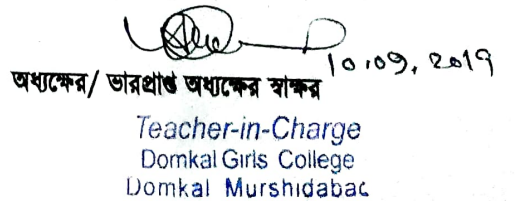 10.09.2019
অধ্যক্ষের/ ভারপ্রাপ্ত অধ্যক্ষের স্বাক্ষর
Teacher-in-Charge
Domkal Girls College
Domkal Murshidabad